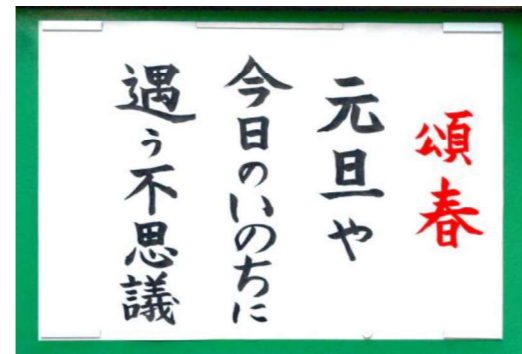 頌春
元旦や
今日のいのちに
遇う不思議